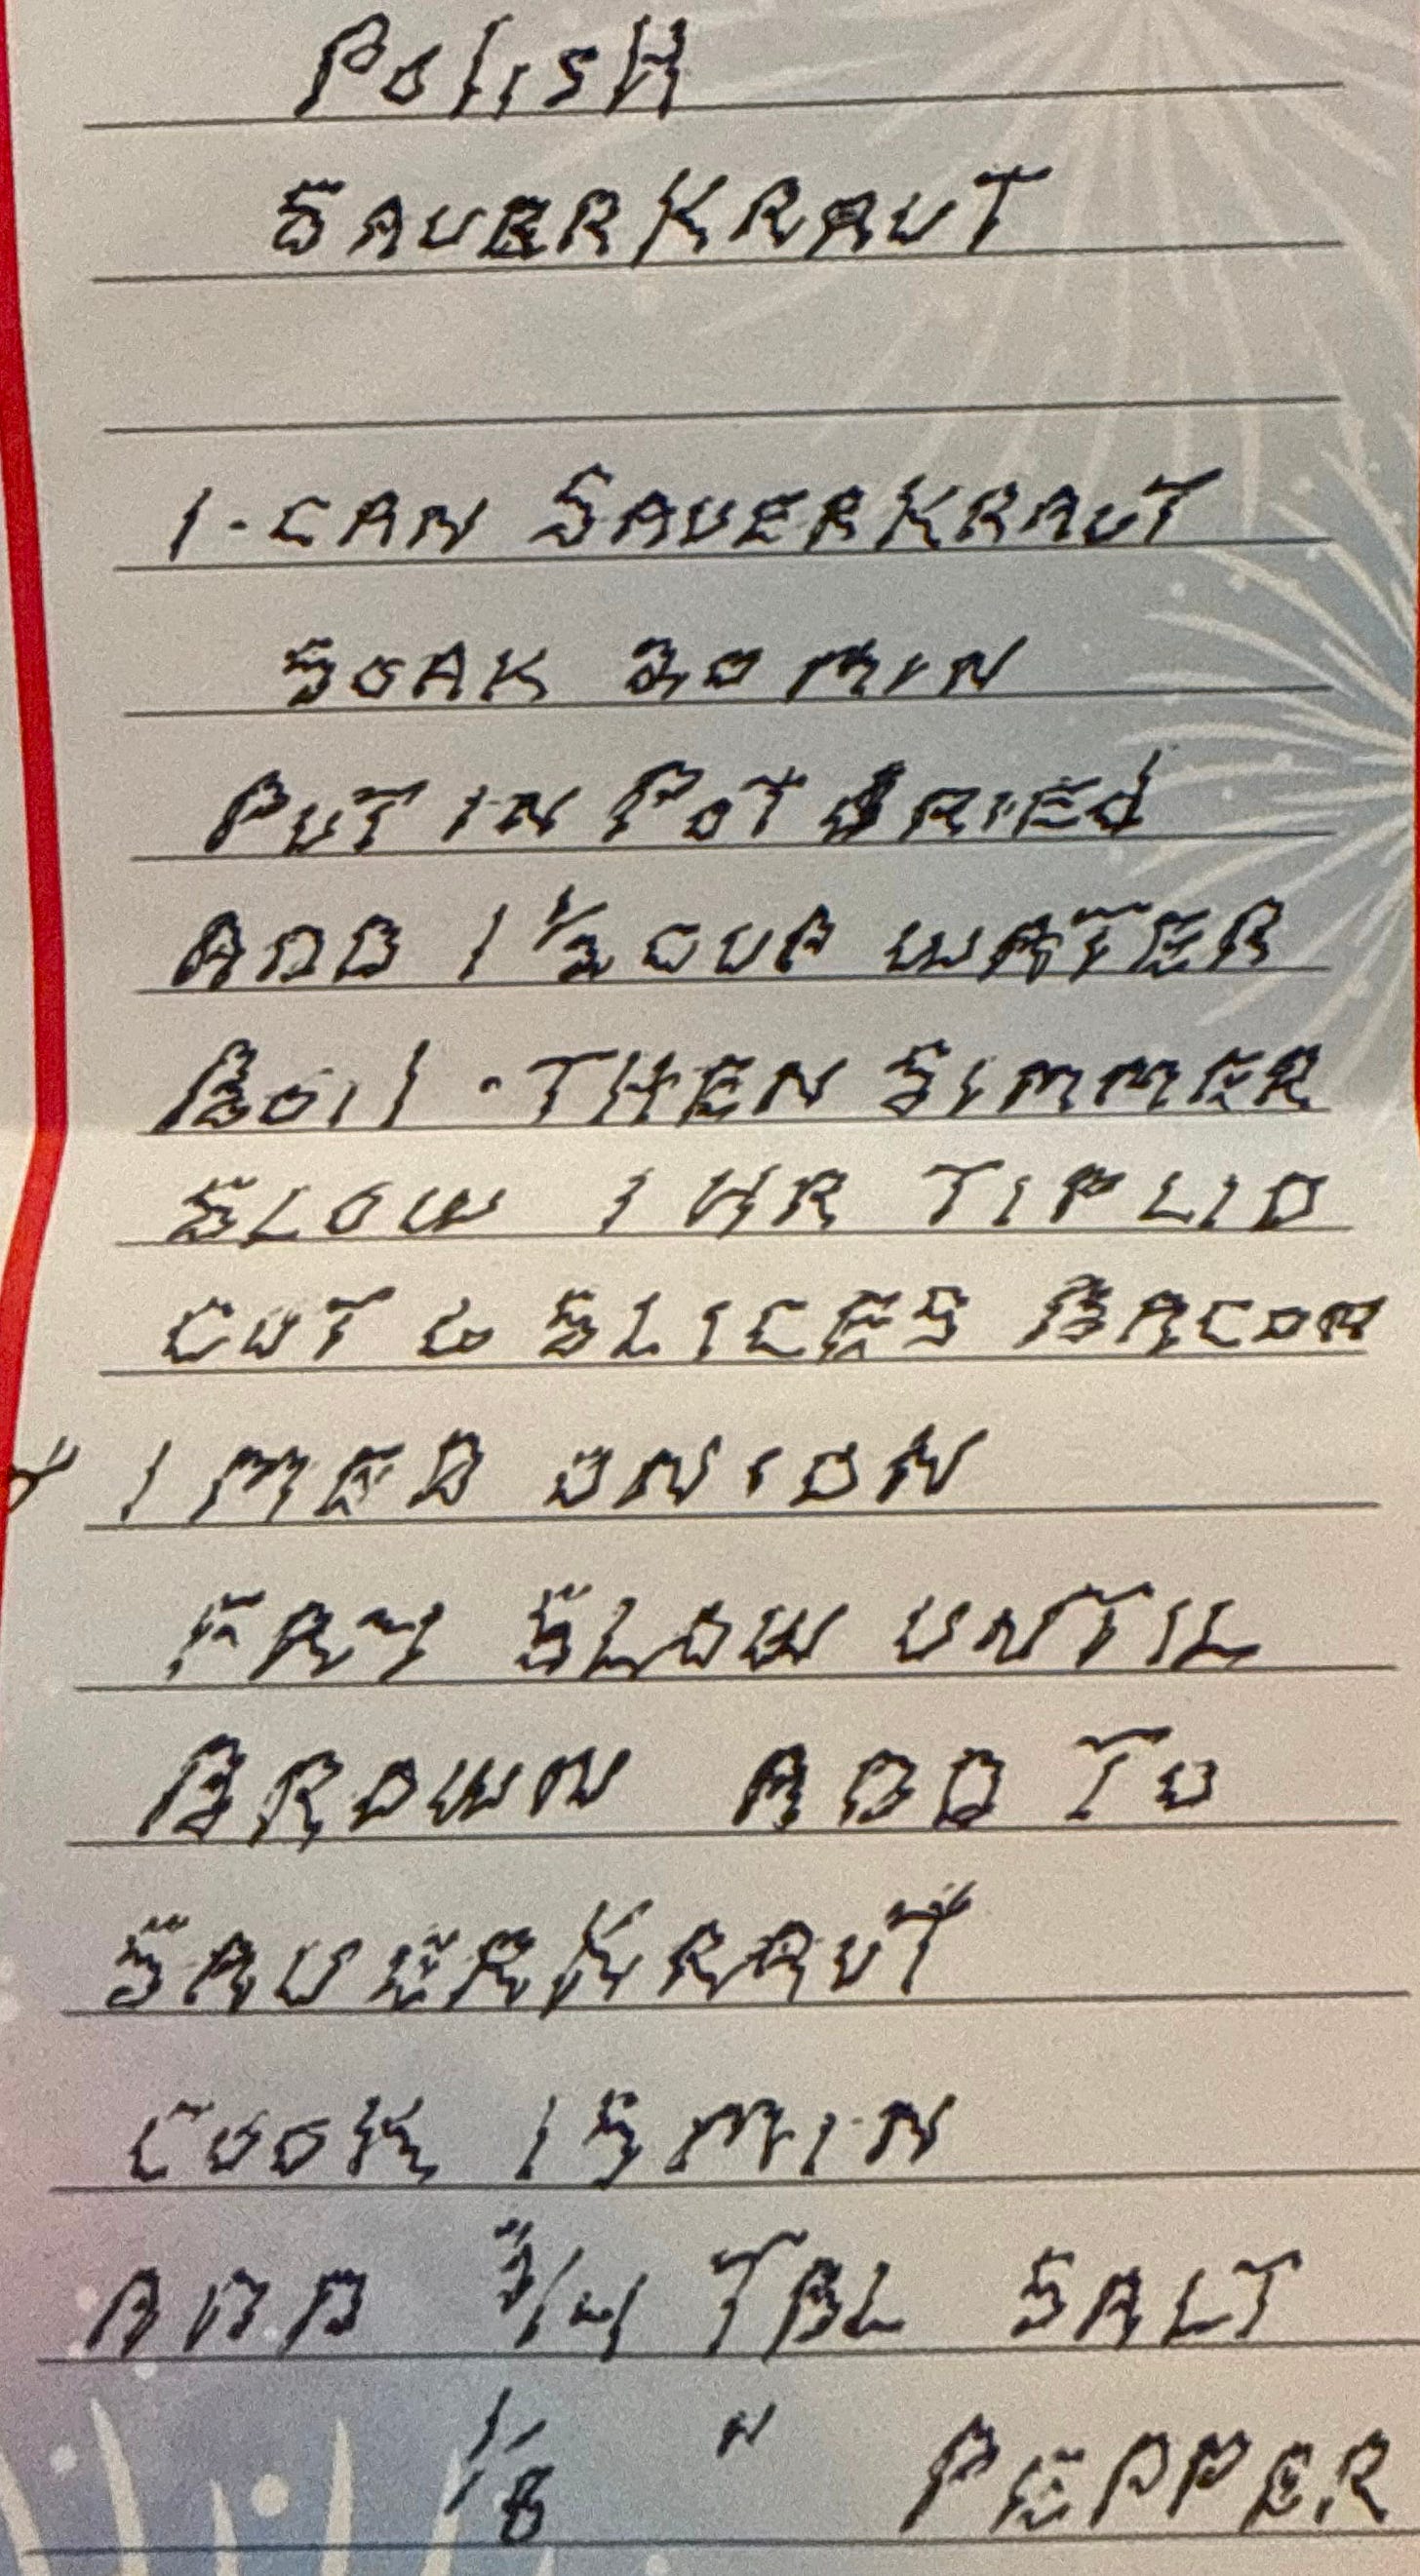 Polish
SAUERKRAUT
1-CAN SAUERKRAUT
SOAK 20 MIN
PUT IN POT dRIEd
ADD 1 1/2 CUP WATER
Boil - THEN SIMMER
SLOW 1 HR TIP LID
CUT 6 SLICES BACON
1 MED ONION
FRY SLOW UNTIL
BROWN ADD TO
SAUERKRAUT
COOK 15 MIN
ADD 3/4 TBL SALT
1/8 " PEPPER